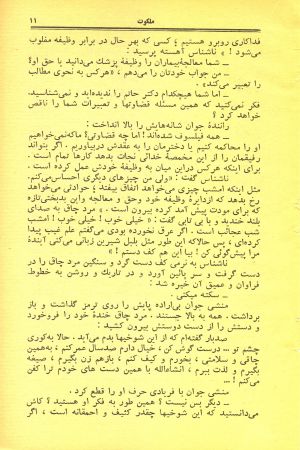 ملکوت
۱۱
فداکاری روبرو هستیم؛ کسی که بهر حال در برابر وظیفه مغلوب
می‌شود! » ناشناس آهسته پرسید :
ـ شما معالجهٔ بیماران را وظیفهٔ پزشک می‌دانید یا حق او؟
ـ من جواب خودتان را می‌دهم ، «هرکس به نحوی مطالب
را تعبیر می‌کند».
ـ اما شما هیچکدام دکتر حاتم را ندیده‌اید و نمی‌شناسید.
فکر نمی‌کنید که همین مسئله قضاوتها و تعبیرات شما را ناقص
خواهد کرد ؟
رانندهٔ جوان شانه‌هایش را بالا انداخت :
ـ همه فیلسوف شده‌اند! اما چه قضاوتی؟ ما که نمی‌خواهیم
او را محاکمه کنیم یا دخترمان را به عقدش دربیاوریم . اگر بتواند
رفیقمان را از این مخمصهٔ خدائی نجات بدهد کارها تمام است .
برای اینکه هرکس در این میان به وظیفهٔ خودش عمل کرده است .
ناشناس گفت : «ولی من چیزهای دیگری احساس می‌کنم.
مثل اینکه امشب چیزی می‌خواهد اتفاق بیفتد ؛ حوادثی می‌خواهد
رخ بدهد که از دایرهٔ وظیفه خود وحق و معالجه و این بدبختی تازه
که برای مودت پیش آمد کرده بیرون است . » مرد چاق به صدای
بلند خندید و با بی تابی گفت : « خیلی خوب ! خیلی خوب ! امشب
شب عجائب است . اگر عرق نخورده بودی می‌گفتم علم غیب پیدا
کرده‌ای ، پس حالا که این طور مثل بلبل شیرین زبانی می‌کنی آیندهٔ
مرا پیش‌گوئی کن ! بیا این هم کف دستم ! »
ناشناس به نرمی کف دست گرد و سنگین مرد چاق را در
دست گرفت و سر پائین آورد و در تاریک و روشن به خطوط
فراوان و عمیق آن خیره شد :
ـ سکته میکنی .
منشی جوان بی‌اراده پایش را روی ترمز گذاشت و باز
برداشت . همه به بالا جستند . مرد چاق خندهٔ خود را فروخورد
و دستش را از دست دوستش بیرون کشید :
صدبار گفته‌ام که از این شوخیها بدم می‌آید . حالا به‌کوری
چشم تو ــ درست گوش کن ، خیال دارم صدسال عمر کنم ، به همین
چاقی و سلامتی ، بخورم و کیف کنم ، باز هم زن بگیرم ، صیغه
بگیرم و لذت ببرم ، انشاءالله با همین دست های خودم ترا کفن
می‌کنم ! ...
منشی جوان با فریادی حرف او را قطع کرد .
ـ دیگر بس نیست؟ همین طور به فکر او هستید؟ کاش
می‌دانستید که این شوخیها چقدر کثیف و احمقانه است ، اگر